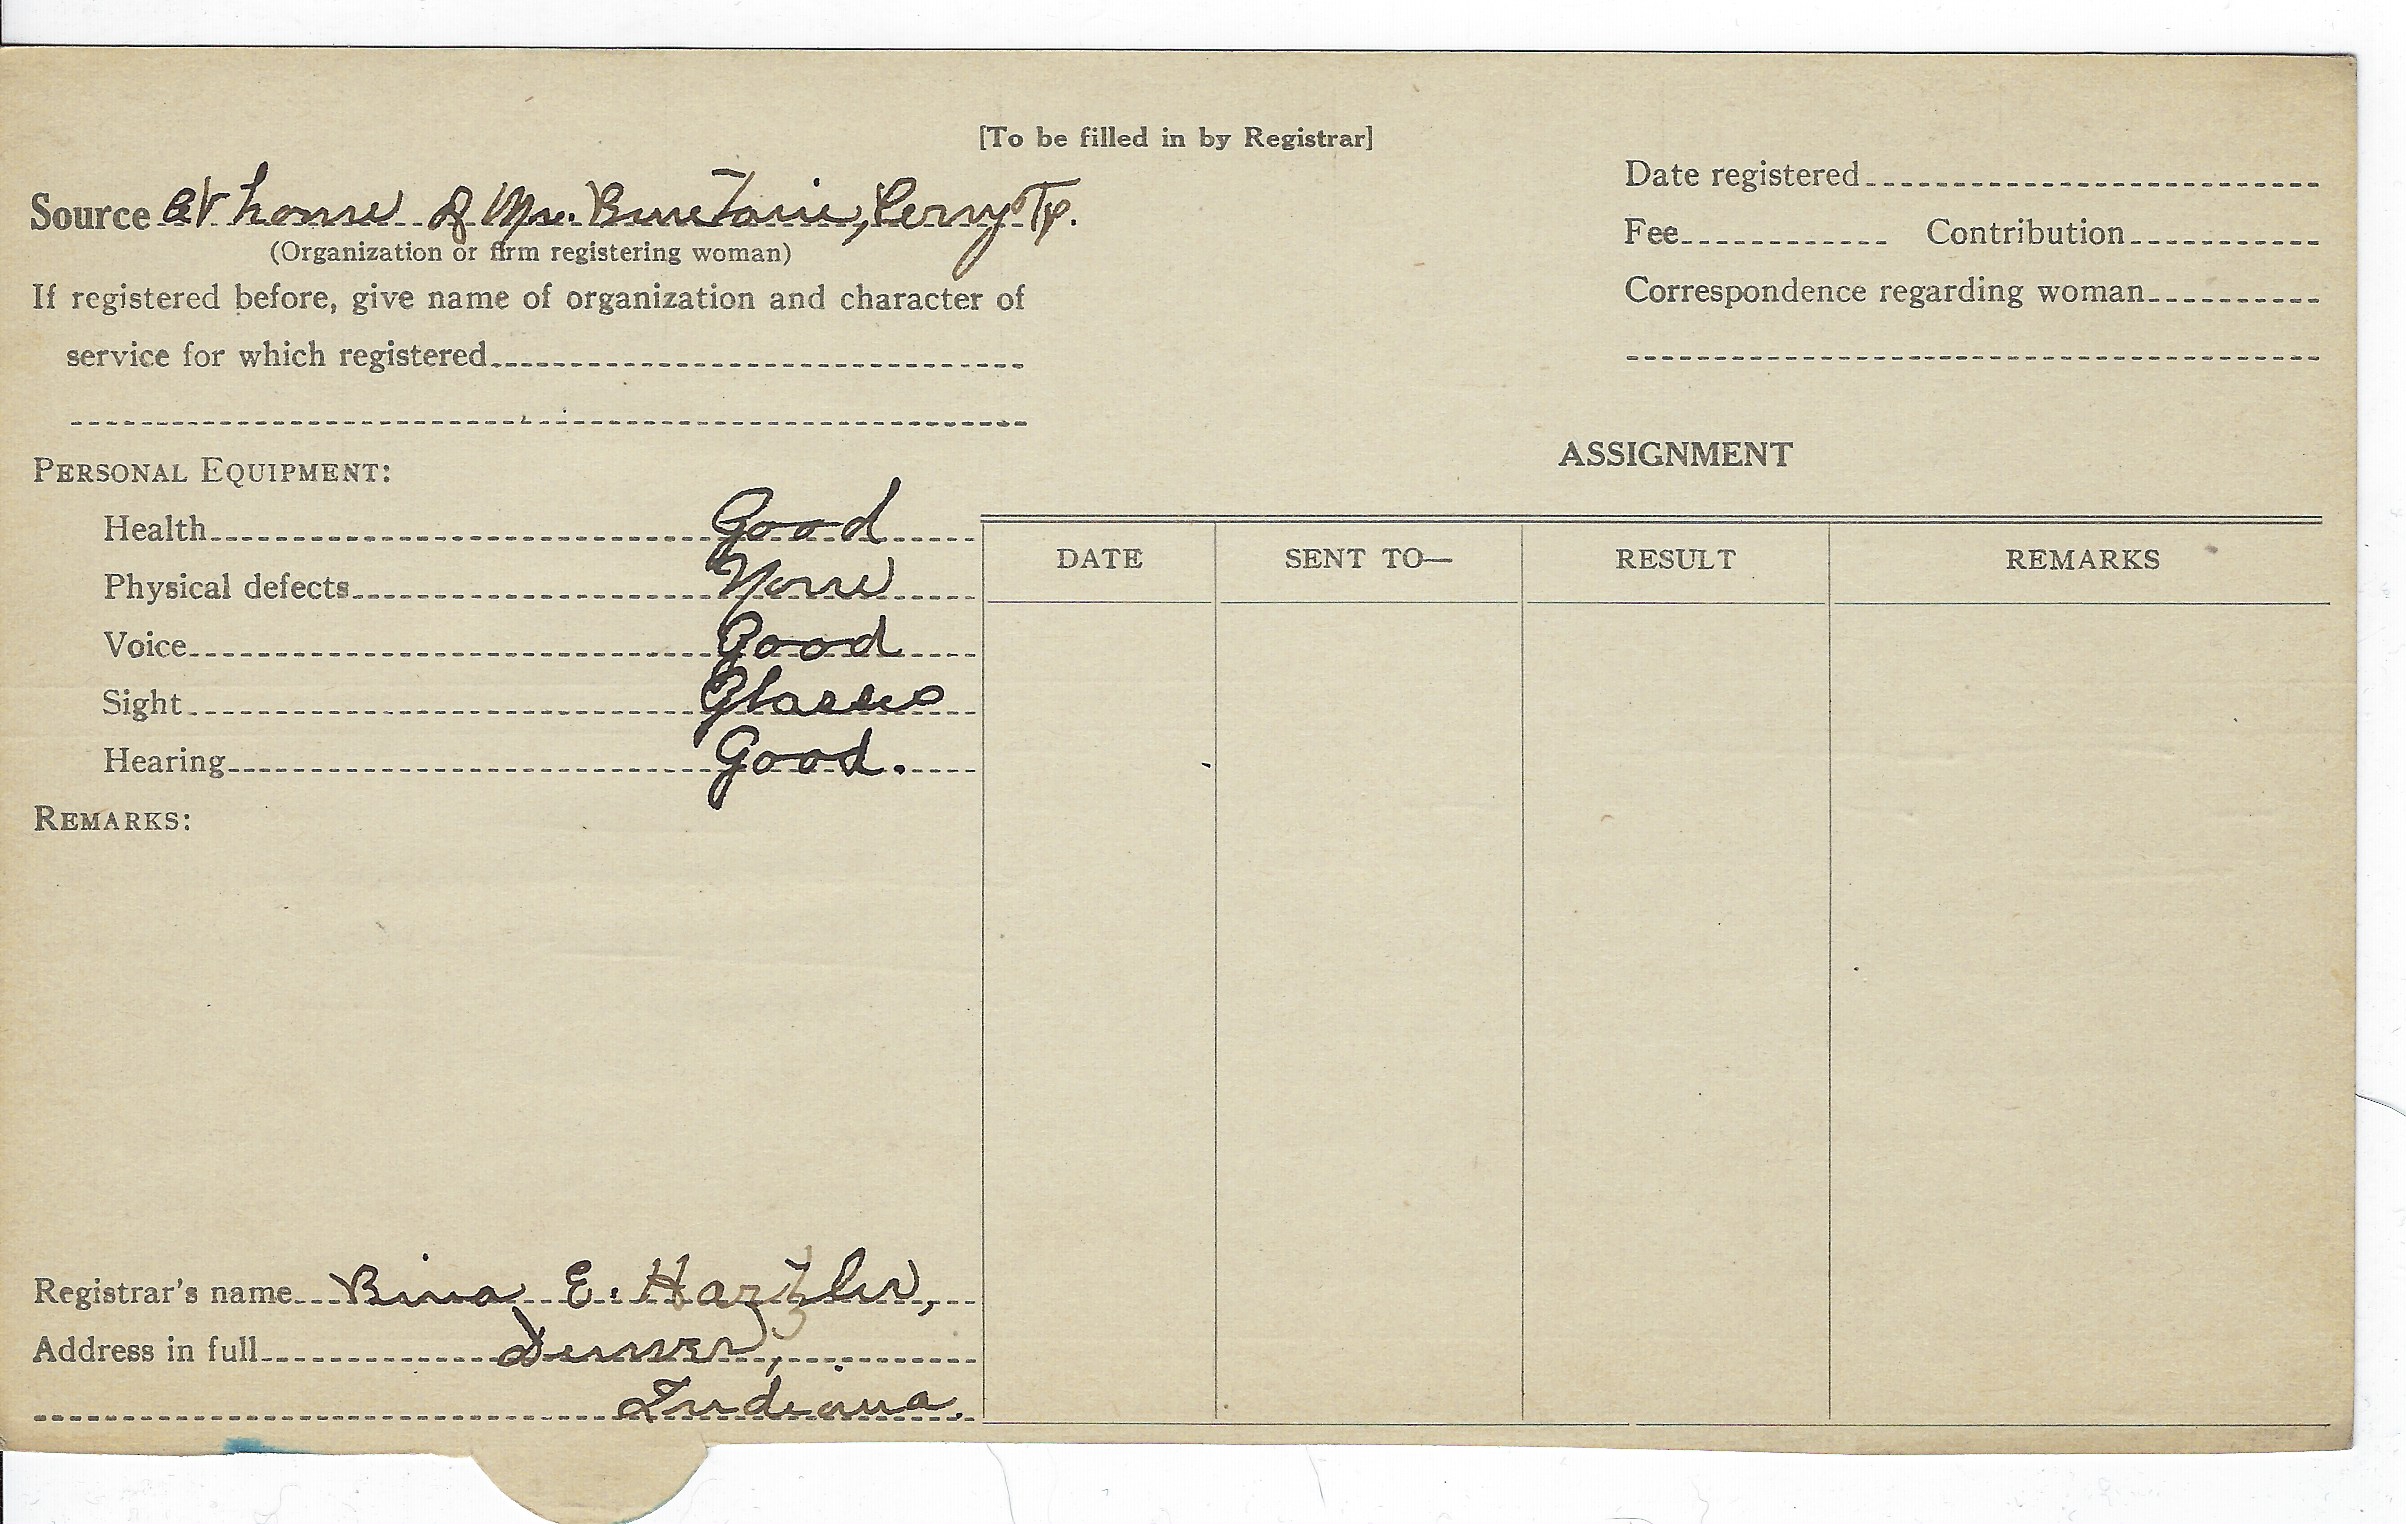 [To be filled in by Registrar]
Source At home of Mrs. , Perry Tp.
(Organization or firm registering woman)
If registered before, give name of organization and character of
service for which registered
Date registered
Fee Contribution
Correspondence regarding woman
PERSONAL EQUIPMENT:
Health Good
Physical defects None
Voice Good
Sight Glasses
Hearing Good.
REMARKS:
Registrar's name Bina E. Hartzler,
Address in full Denver,
Indiana.
ASSIGNMENT
DATE SENT TO— RESULT REMARKS